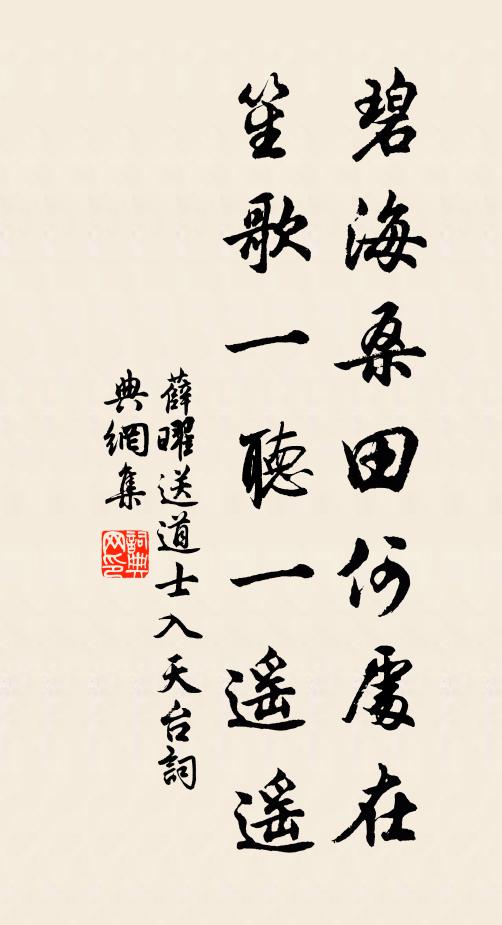 碧海桑田何處在
笙歌一聽一遥遥
薛曜送道士入天台詞
典網集
詞典网印